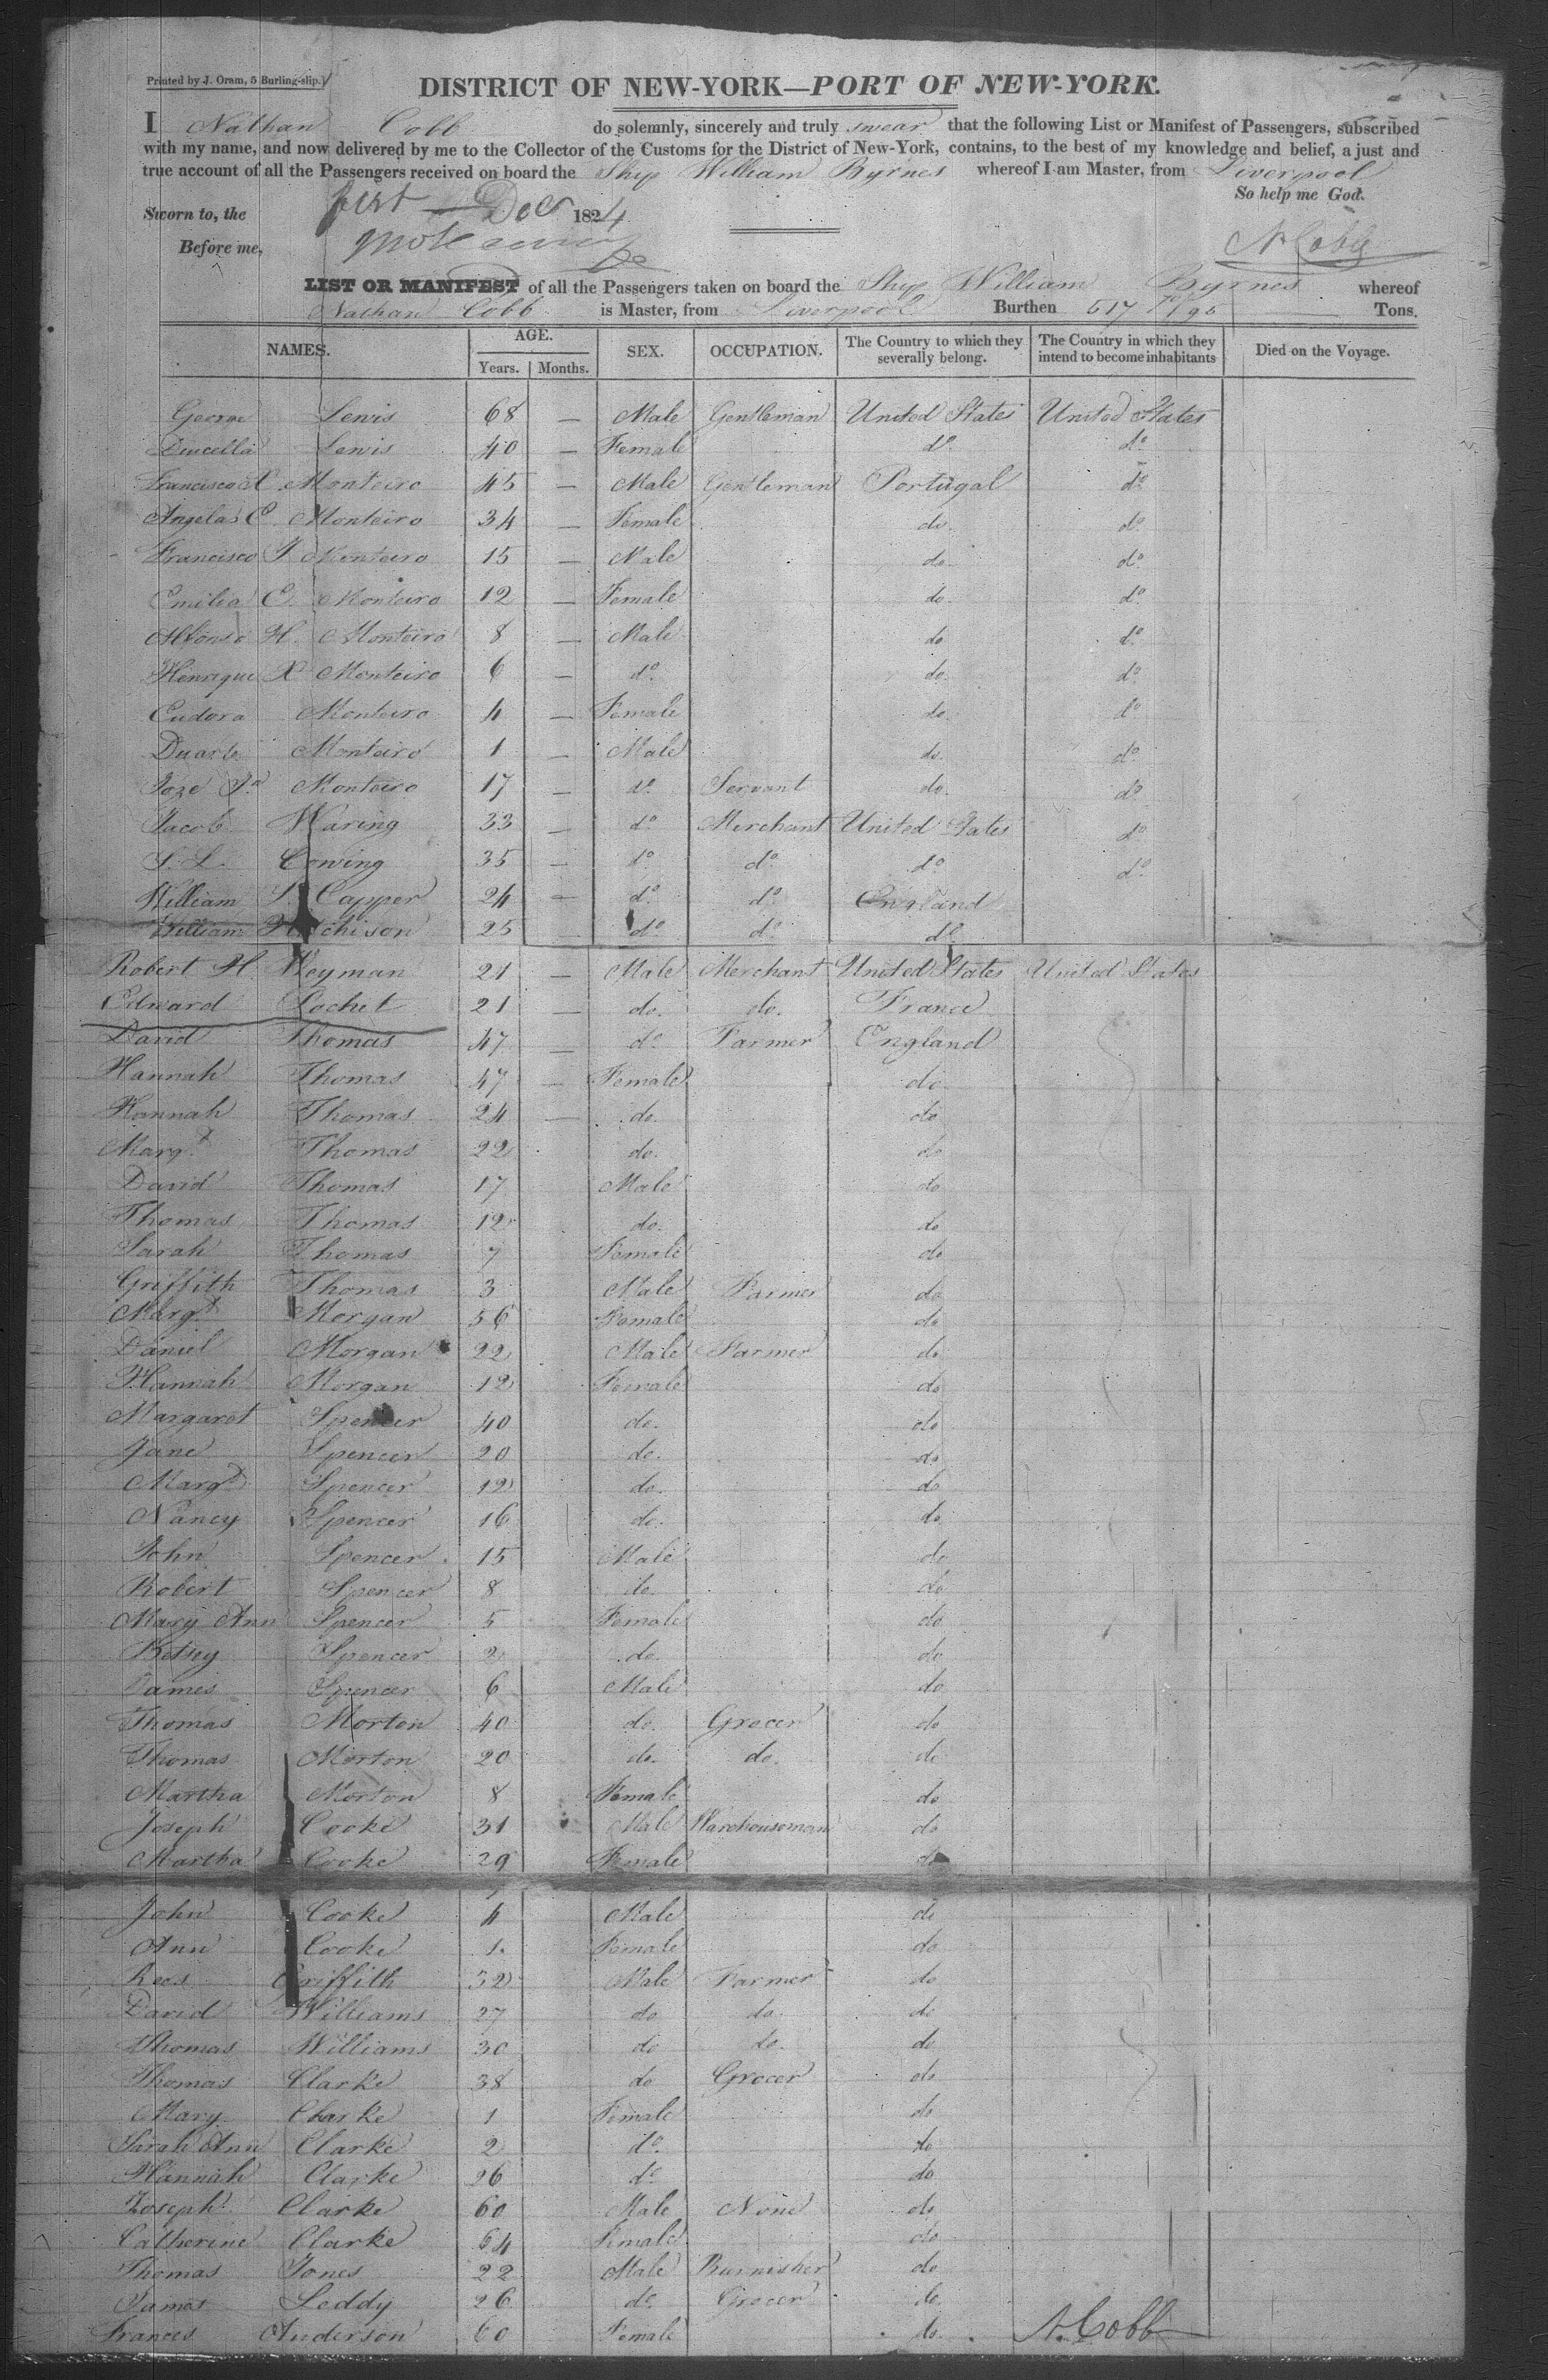 Printed by J. Oram, 5 Burling-slip.
DISTRICT OF NEW-YORK—PORT OF NEW-YORK.
I Nathan Cobb do solemnly, sincerely and truly swear that the following List or Manifest of Passengers, subscribed
with my name, and now delivered by me to the Collector of the Customs for the District of New-York, contains, to the best of my knowledge and belief, a just and
true account of all the Passengers received on board the Ship William Byrnes whereof I am Master, from Liverpool
So help me God.
Sworn to, the first Dec 1824
Before me, N Cobb
LIST OR MANIFEST of all the Passengers taken on board the Ship William Byrnes whereof
Nathan Cobb is Master, from Liverpool Burthen 517 /95 Tons.
NAMES. AGE. Years. Months. SEX. OCCUPATION. The Country to which they severally belong. The Country in which they intend to become inhabitants Died on the Voyage.
George Lewis 68 — Male Gentleman United States United States
Lewis 40 — Female do do
Francisco Monteiro 45 — Male Gentleman Portugal do
Angela C Monteiro 34 — Female do do
Francisco J Monteiro 15 — Male do do
Emilia C. Monteiro 12 — Female do do
Alfonso H. Monteiro 8 — Male do do
Henrique X Monteiro 6 — do do do
Eudora Monteiro 4 — Female do do
Duarte Monteiro 1 — Male do do
Joze Monteiro 17 — do Servant do do
Jacob Waring 33 — do Merchant United States do
S. L. Cowing 35 — do do do do
William S. Capper 24 — do do England
William Hutchison 25 — do do do
Robert H. Weyman 21 — Male Merchant United States United States
Edward Lochet 21 — do. do. France
David Thomas 47 — do Farmer England
Hannah Thomas 47 — Female do
Hannah Thomas 24 — do. do
Margt Thomas 22 do. do
David Thomas 17 Male do
Thomas Thomas 12 do. do
Sarah Thomas 7 Female do
Griffith Thomas 3 Male Farmer do
Margt Morgan 56 Female do
Daniel Morgan 22 Male Farmer do
Hannah Morgan 12 Female do
Margaret Spencer 40 do. do
Jane Spencer 20 do. do
Margt Spencer 12 do. do
Nancy Spencer 16 do. do
John Spencer 15 Male do
Robert Spencer 8 do. do
Mary Ann Spencer 5 Female do
Betsey Spencer 2 do. do
James Spencer 6 Male do
Thomas Morton 40 do. Grocer do
Thomas Morton 20 do. do. do
Martha Morton 8 Female do
Joseph Cooke 31 Male Warehouseman do
Martha Cooke 29 Female do
John Cooke 4 Male do
Ann Cooke 1. Female do
Rees Griffith 32 Male Farmer do
David Williams 27 do do. do
Thomas Williams 30 do do. do
Thomas Clarke 38 do Grocer do
Mary Clarke 1 Female do
Sarah Ann Clarke 2 do do
Hannah Clarke 26 do do
Joseph Clarke 60 Male None do
Catherine Clarke 64 Female do
Thomas Jones 22 Male Burnisher do
James Leddy 26 do Grocer do.
Frances Anderson 60 Female do.
N. Cobb